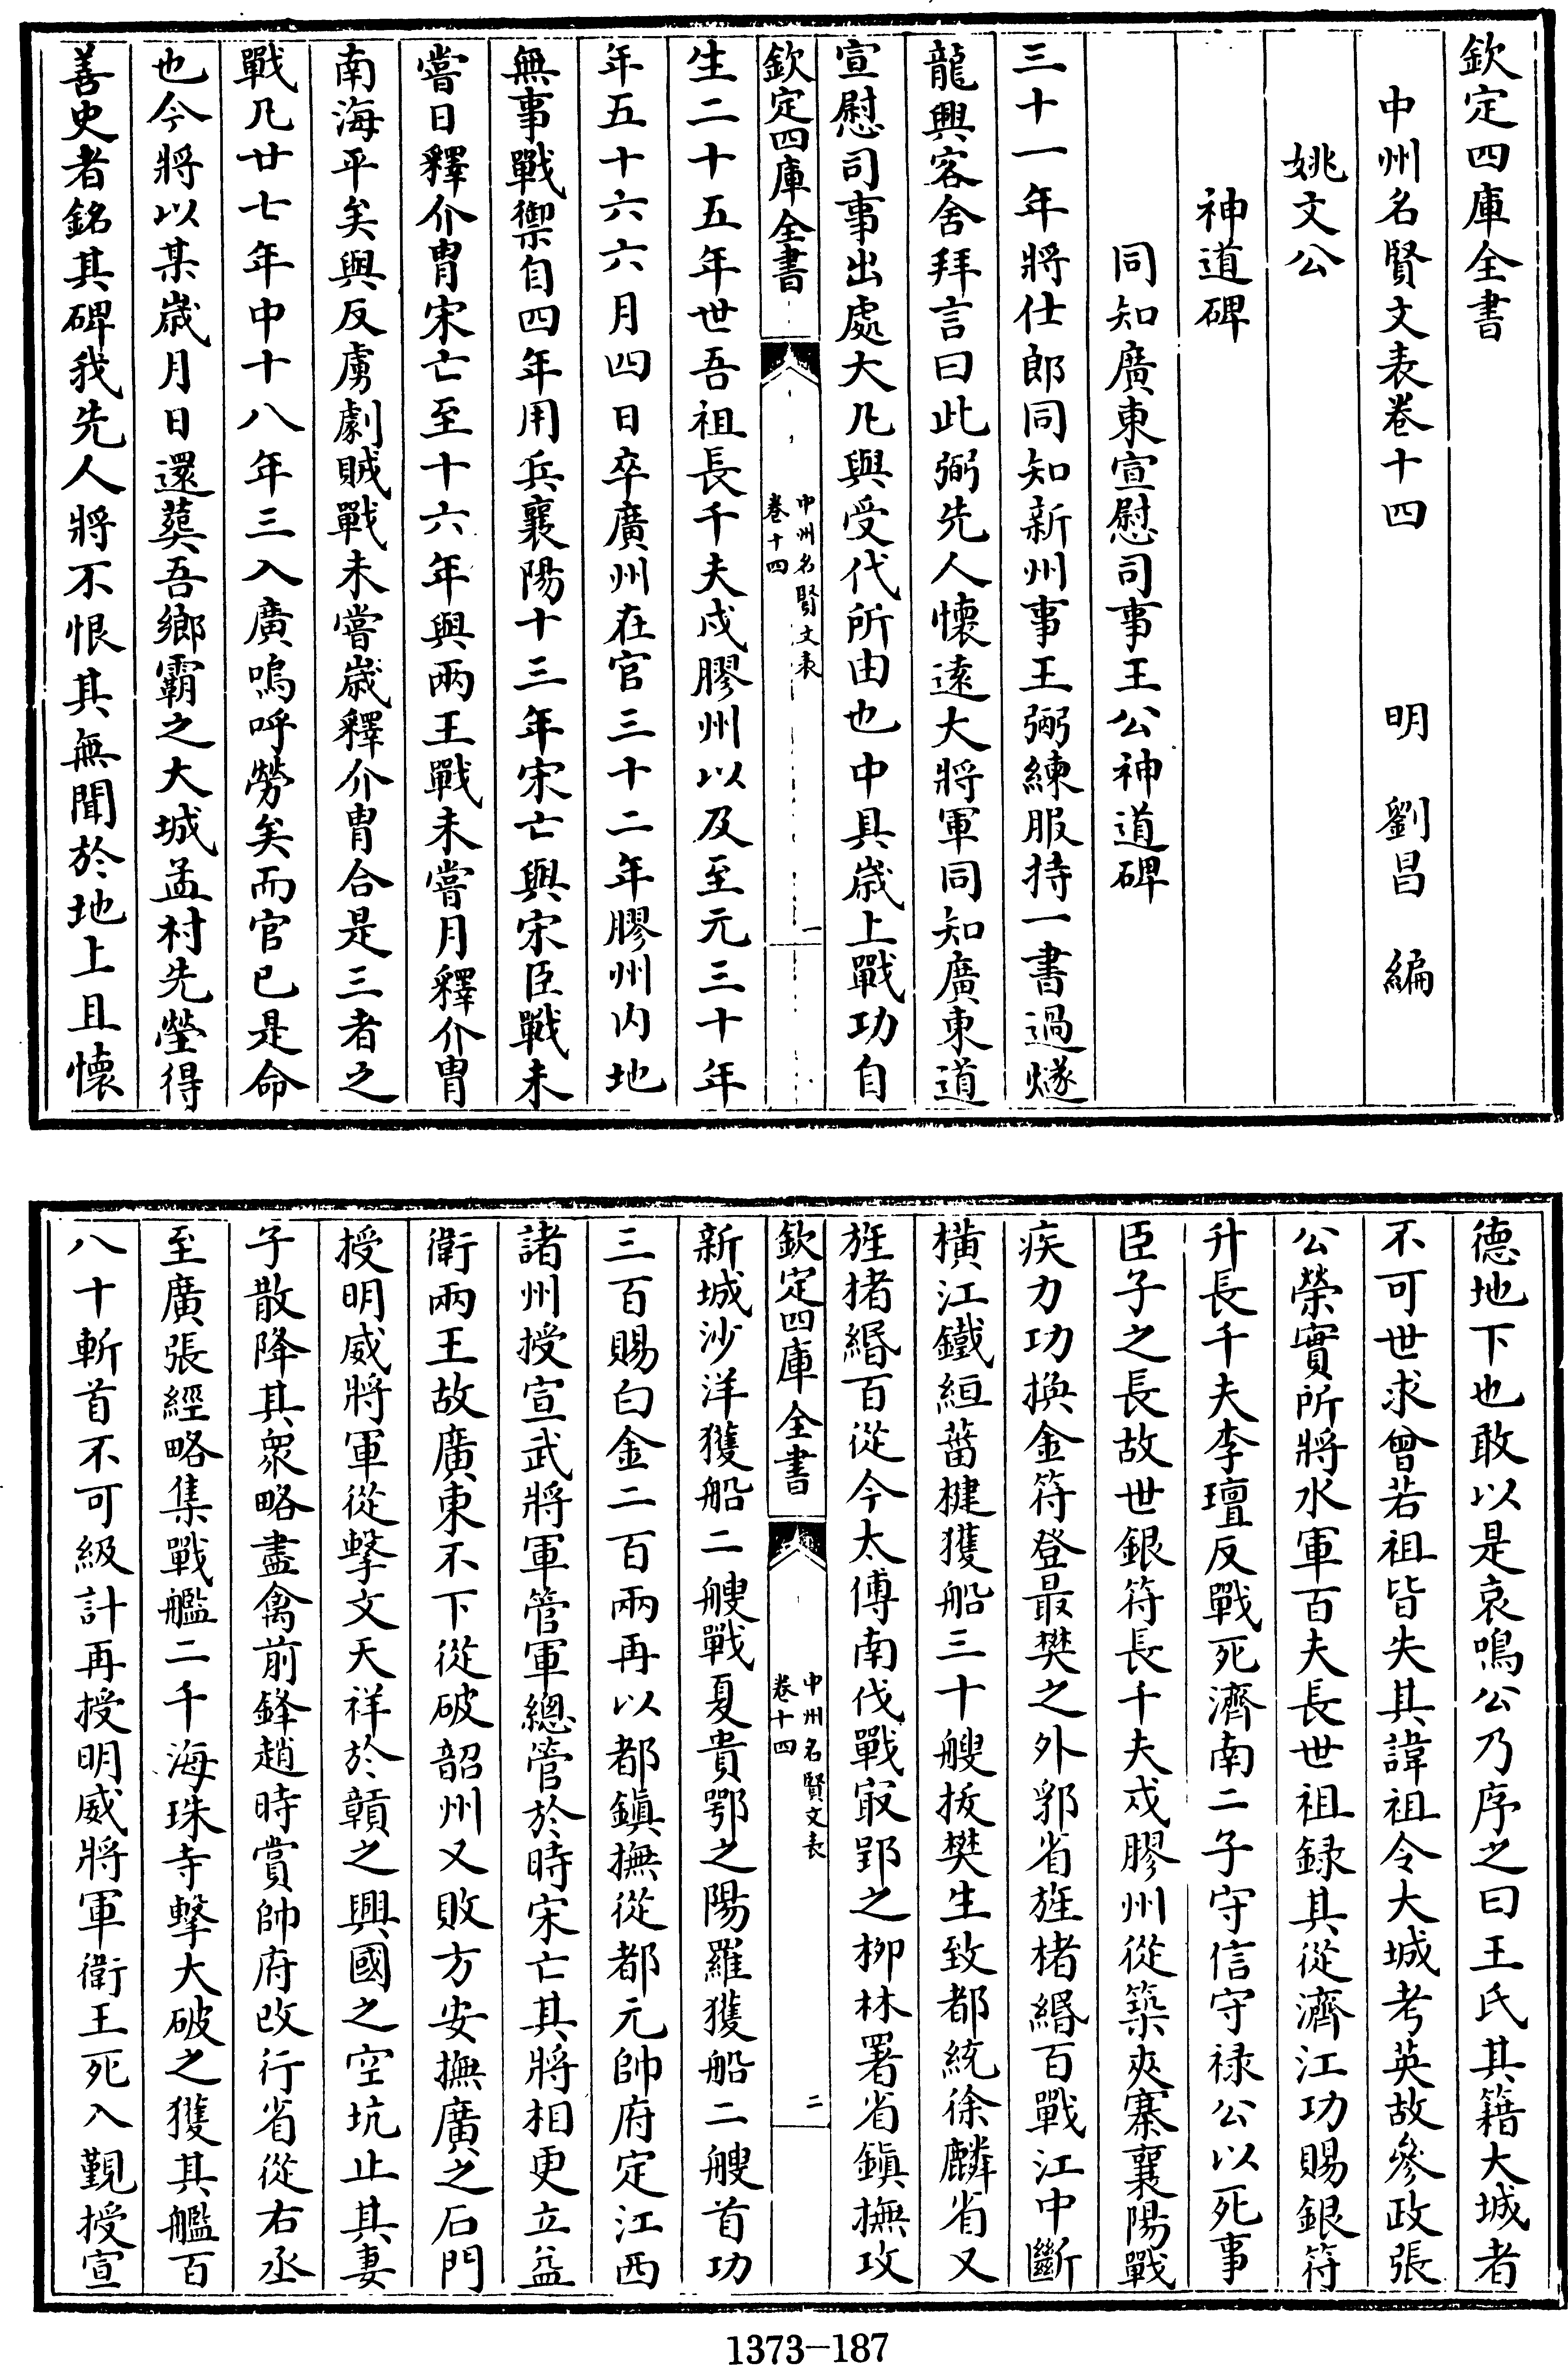 欽定四庫全書
中州名賢文表卷十四　　明　劉昌　編
姚文公
神道碑
同知廣東宣慰司事王公神道碑
三十一年將仕郎同知新州事王弼練服持一書過燧
龍興客舍拜言曰此弼先人懷遠大將軍同知廣東道
宣慰司事出處大凡與受代所由也中具歳上戰功自
欽定四庫全書
中州名賢文表
卷十四
一
生二十五年世吾祖長千夫戍膠州以及至元三十年
年五十六六月四日卒廣州在官三十二年膠州内地
無事戰禦自四年用兵襄陽十三年宋亡與宋臣戰未
嘗日釋介胄宋亡至十六年與兩王戰未嘗月釋介胄
南海平矣與反虜劇賊戰未嘗歳釋介胄合是三者之
戰凡廿七年中十八年三入廣嗚呼勞矣而官已是命
也今將以某歳月日還葬吾鄉霸之大城孟村先塋得
善史者銘其碑我先人將不恨其無聞於地上且懷
德地下也敢以是哀鳴公乃序之曰王氏其籍大城者
不可世求曾若祖皆失其諱祖令大城考英故參政張
公榮實所將水軍百夫長世祖録其從濟江功賜銀符
升長千夫李璮反戰死濟南二子守信守禄公以死事
臣子之長故世銀符長千夫戍膠州從築夾寨襄陽戰
疾力功換金符登最樊之外郛省旌楮緡百戰江中斷
橫江鐵絙蒥楗獲船三十艘拔樊生致都統徐麟省又
旌楮緡百從今太傅南伐戰㝡郢之柳林署省鎮撫攻
欽定四庫全書
中州名賢文表
卷十四
二
新城沙洋獲船二艘戰夏貴鄂之陽羅獲船二艘首功
三百賜白金二百兩再以都鎮撫從都元帥府定江西
諸州授宣武將軍管軍總管於時宋亡其將相更立益
衛兩王故廣東不下從破韶州又敗方安撫廣之石門
授明威將軍從擊文天祥於贛之興國之空坑止其妻
子散降其衆略盡禽前鋒趙時賞帥府改行省從右丞
至廣張經略集戰艦二千海珠寺擊大破之獲其艦百
八十斬首不可級計再授明威將軍衛王死入覲授宣
1373-187